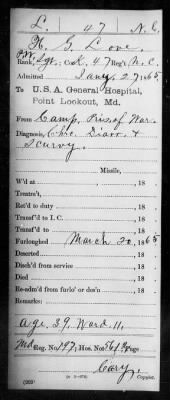 L. 47 N.C.
H. G. Love.
P.W. Rank, Sgt. Co. K, 47 Reg't N.C.
Admitted Jany. 27, 1865
To U.S.A. General Hospital,
Point Lookout, Md.
From Camp, Pris. of War.
Diagnosis, Chro. Diarr. &
Scurvy.
Missile,
W'd at , 18
Treatm't,
Ret'd to duty , 18
Transf'd to I. C. , 18
Transf'd to , 18
Furloughed March 20, 1865
Deserted , 18
Disch'd from service , 18
Died , 18
Re-adm'd from furlo' or des'n , 18
Remarks:
Age 39. Ward 11.
Md Reg. No. 197; Hos. No. Page
Cary,
Copyist.